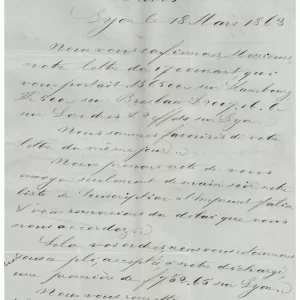 Lyon le 18 Mars 1863
Nous vous confirmons, Monsieur,
notre lettre du 17 courant qui
vous portait B 6500 sur Hambourg
500 sur Breslau
sur Londres & sur Lyon.
Nous sommes favorisés de votre
lettre du même jour.
Nous prenons note de vous
seulement demain soir notre
liste de Souscription Emprunt Italien
& vous remercions du délai que vous
nous accordez.
Selon vos ordres nous vous retournons
sous ce pli, accepté à notre décharge,
une première de f 752.15 sur Lyon.
Nous vous remettons